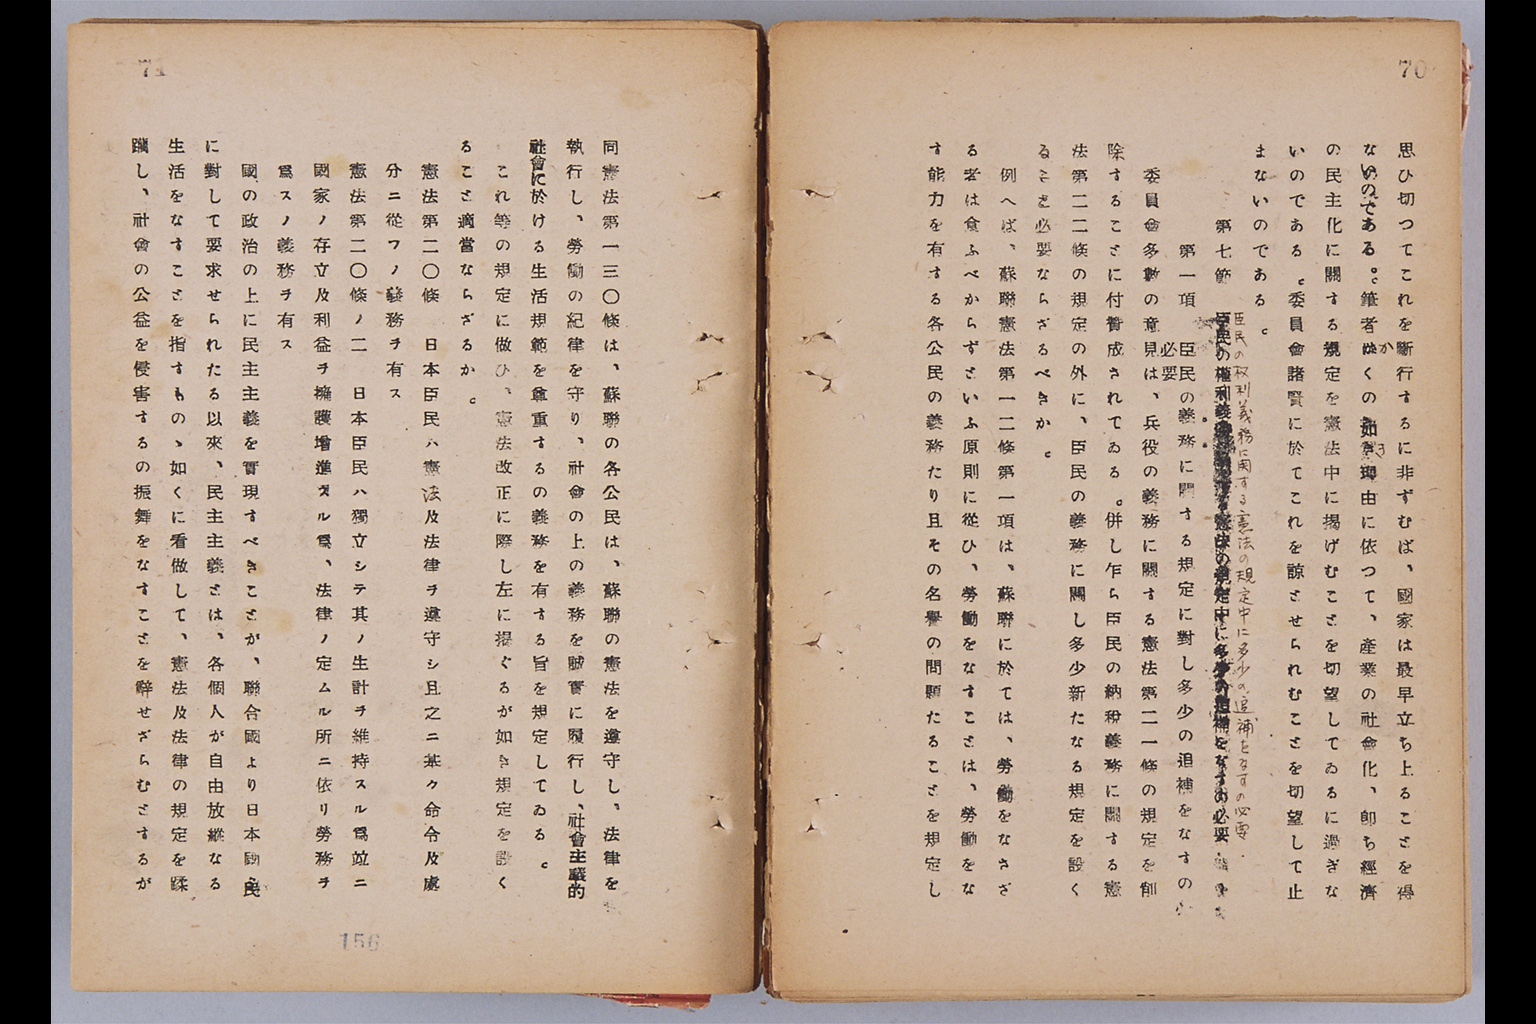 70
思ひ切つてこれを斷行するに非ずむば、國家は最早立ち上ることを得
ないのである。筆者はかくの如き理由に依つて、產業の社會化、卽ち經濟
の民主化に關する規定を憲法中に揭げむことを切望してゐるに過ぎな
いのである。委員會諸賢に於てこれを諒とせられむことを切望して止
まないのである。
臣民の权利義務に関する憲法の規定中に多少の追補をなすの必要
第七節 臣民の權利義務に關する憲法の規定中に多少の追補をなすの必要
第一項 臣民の義務に關する規定に對し多少の追補をなすの
必要
委員會多數の意見は、兵役の義務に關する憲法第二一條の規定を削
除することに付贊成されてゐる。併し乍ら臣民の納稅義務に關する憲
法第二二條の規定の外に、臣民の義務に關し多少新たなる規定を設く
ること必要ならざるべきか。
例へば、蘇聯憲法第一二條第一項は、蘇聯に於ては、勞働をなさざ
る者は食ふべからずといふ原則に從ひ、勞働をなすことは、勞働をな
す能力を有する各公民の義務たり且その名譽の問題たることを規定し
71
同憲法第一三〇條は、蘇聯の各公民は、蘇聯の憲法を遵守し、法律を
執行し、勞働の紀律を守り、社會の上の義務を誠實に履行し、社會主義的
社會に於ける生活規範を尊重するの義務を有する旨を規定してゐる。
これ等の規定に倣ひ、憲法改正に際し左に揭ぐるが如き規定を設く
ること適當ならざるか。
憲法第二〇條 日本臣民ハ憲法及法律ヲ遵守シ且之ニ基ク命令及處
分ニ從フノ義務ヲ有ス
憲法第二〇條ノ二 日本臣民ハ獨立シテ其ノ生計ヲ維持スル爲竝ニ
國家ノ存立及利益ヲ擁護增進スル爲、法律ノ定ムル所ニ依リ勞務ヲ
爲スノ義務ヲ有ス
國の政治の上に民主主義を實現すべきことが、聯合國より日本國民
に對して要求せられたる以來、民主主義とは、各個人が自由放縱なる
生活をなすことを指すものゝ如くに看做して、憲法及法律の規定を蹂
躪し、社會の公益を侵害するの振舞をなすことを辭せざらむとするが
156